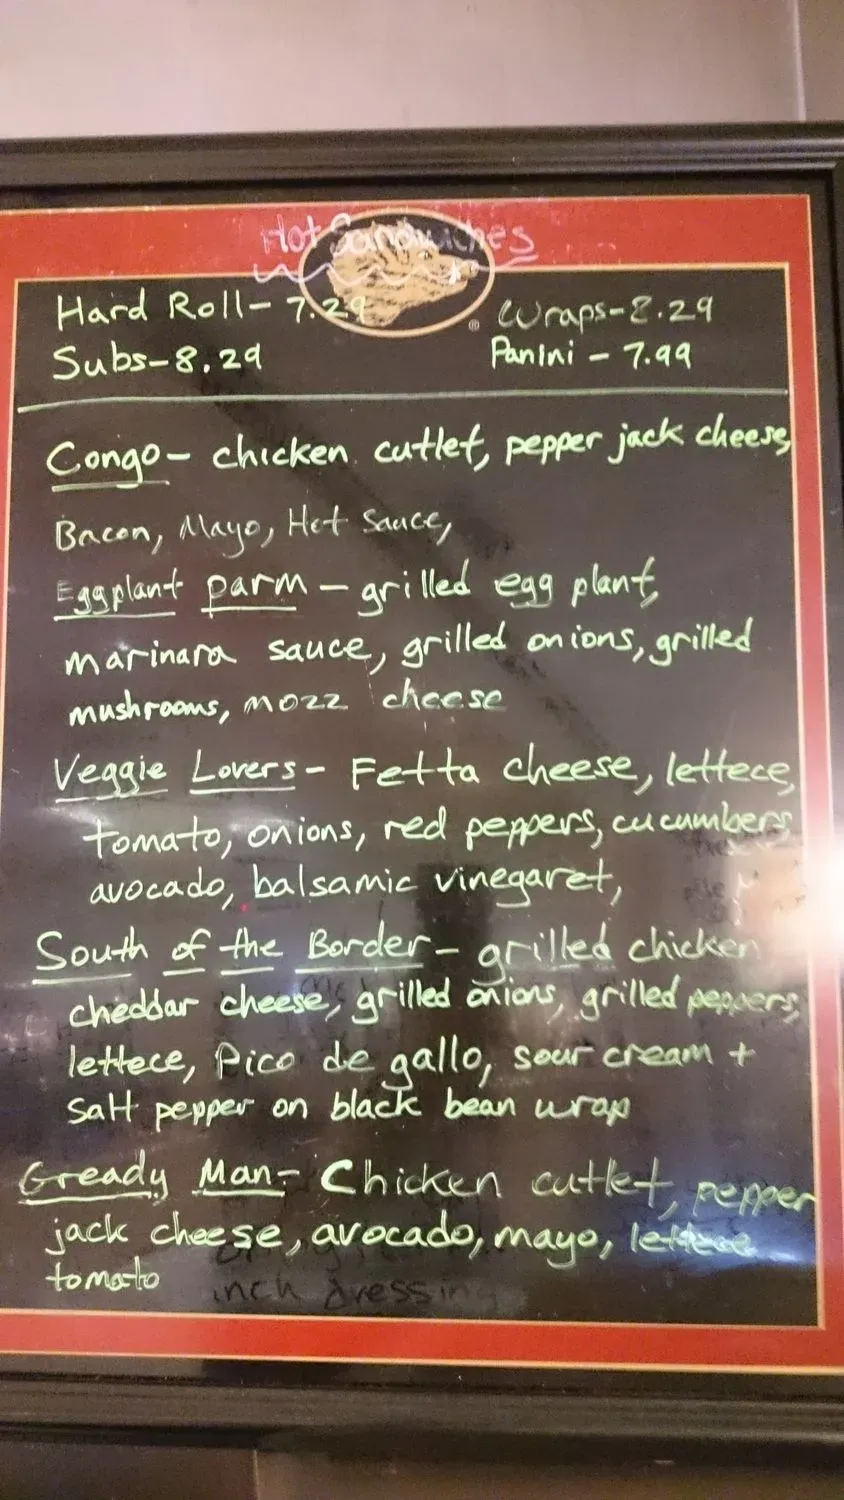 Hot Sandwiches
Hard Roll- 7.29
Wraps-8.29
Subs-8.29
Panini - 7.99
Congo- chicken cutlet, pepper jack cheese,
Bacon, Mayo, Hot Sauce,
Eggplant parm - grilled egg plant,
marinara sauce, grilled onions, grilled
mushrooms, mozz cheese
Veggie Lovers- Fetta cheese, lettece,
tomato, onions, red peppers, cucumbers,
avocado, balsamic vinegaret,
South of the Border- grilled chicken
cheddar cheese, grilled onions, grilled peppers,
lettece, Pico de gallo, sour cream +
Salt pepper on black bean wrap
Gready Man- Chicken cutlet, pepper
jack cheese, avocado, mayo, lettece
tomato
inch dressing